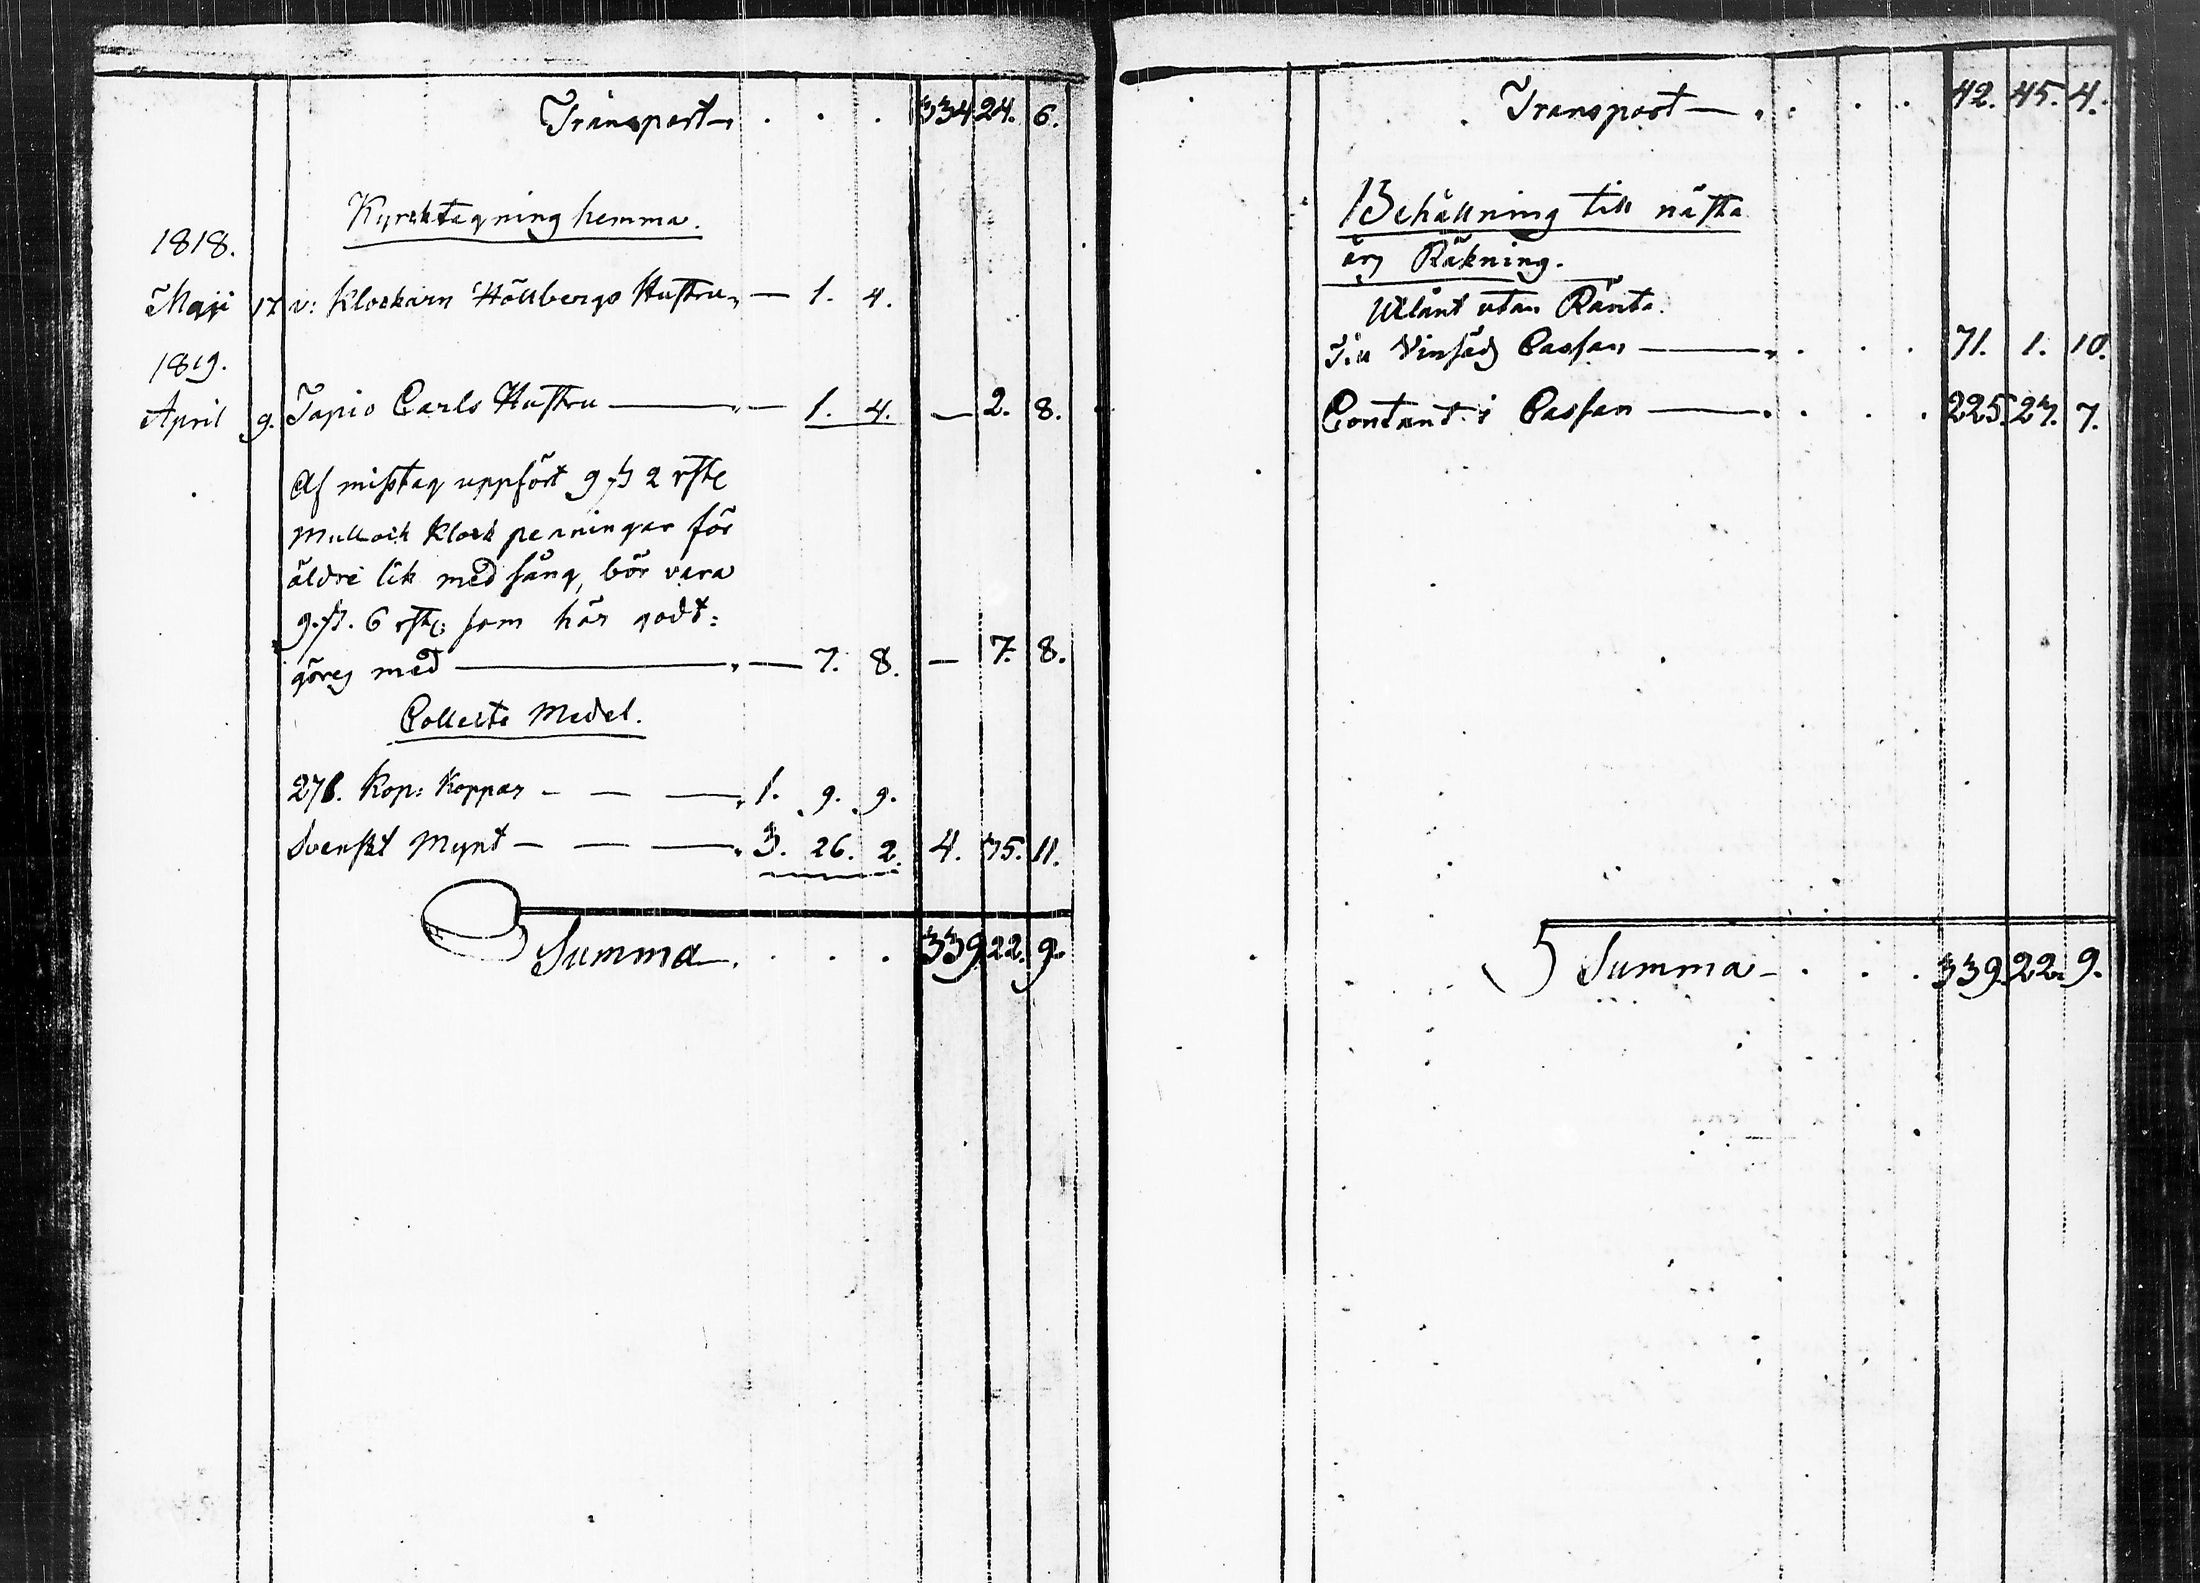 Transport 334. 24. 6.
Kyrcktagning hemma.
1818.
Maji 17 v: Klockarn Hällbergs Hustru — 1. 4.
1819.
April 9. Tapio Carls Hustru — 1. 4. — 2. 8.
Af misstag uppfört 9 2
Mull och Klock penningar för
äldre lik med sång, bör vara
9. 6 som här godt:
göres med — 7. 8. — 7. 8.
Collecte Medel.
278. Kop: Koppar — — — 1. 9. 9.
Svenskt Mynt — — — 3. 26. 2. 4. 35. 11.
Summa 339. 22. 9.
Transport — 42. 45. 4.
Behållning till nästa
års Räkning.
Utlånt utan Ränta.
Till Cassan — 71. 1. 10.
Contant i Cassan — 225. 23. 7.
Summa 339. 22. 9.